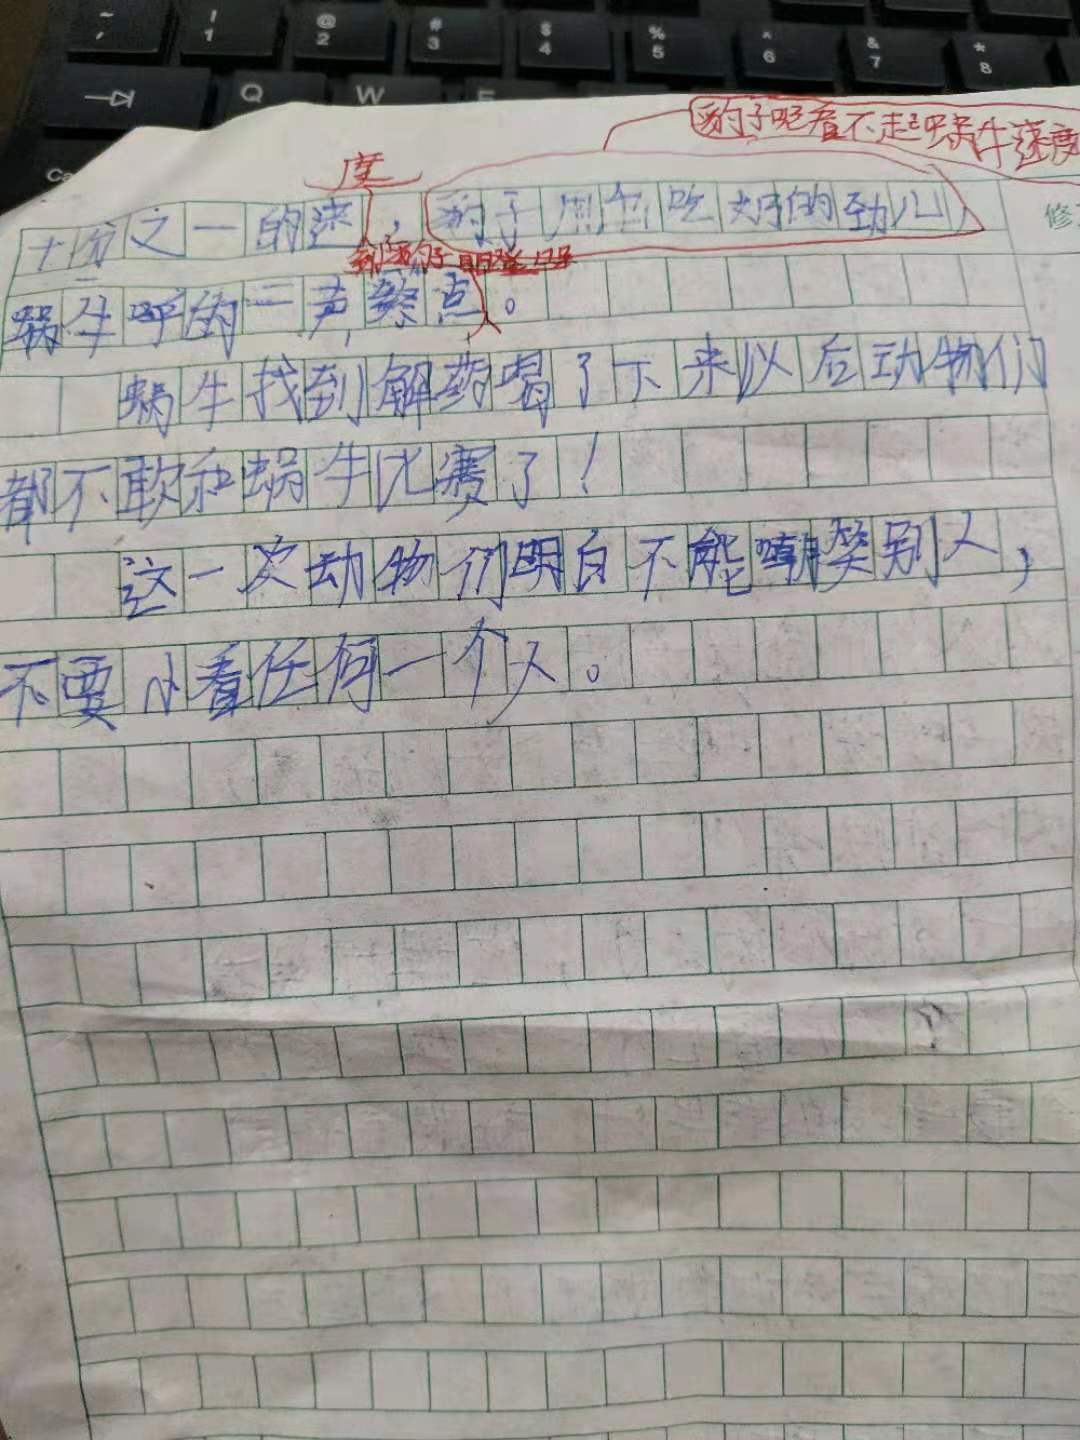 ~ ! @ # $ % ^ & *
1 2 3 4 5 6 7 8
Q W E
豹子呢看不起蜗牛速度
度
十份之一的速，豹子用包吃奶的劲儿，
修
到豹子
蜗牛呼的一声终点。
蜗牛找到解药喝了下来以后动物们
都不敢和蜗牛比赛了！
这一次动物们明白不能嘲笑别人，
不要小看任何一个人。